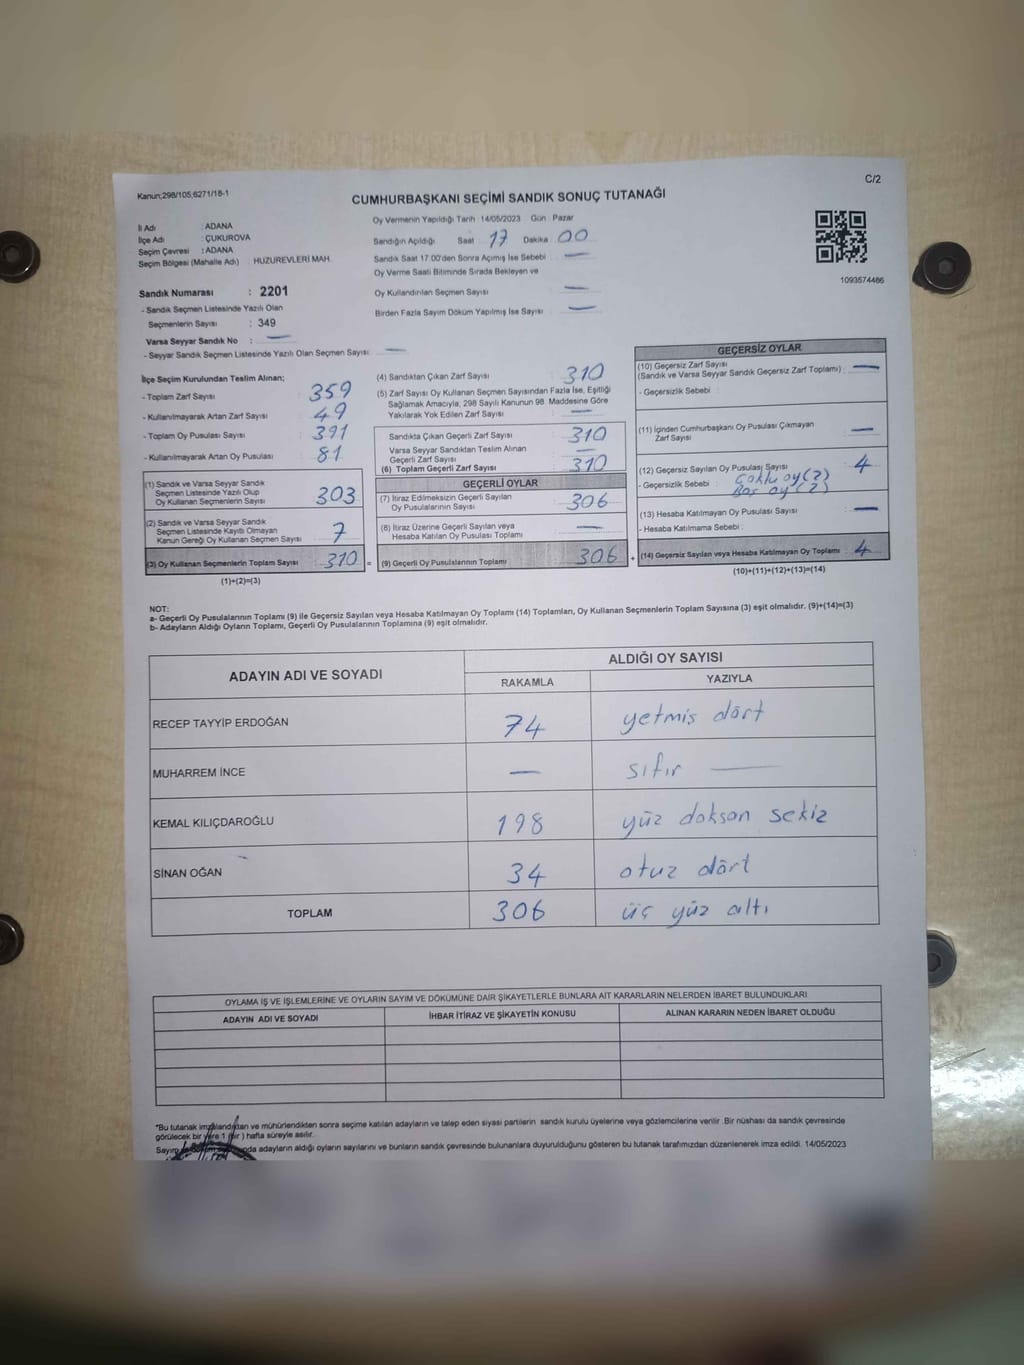 Kanun;298/105,6271/18-1
C/2
CUMHURBAŞKANI SEÇİMİ SANDIK SONUÇ TUTANAĞI
İl Adı : ADANA
İlçe Adı : ÇUKUROVA
Seçim Çevresi : ADANA
Seçim Bölgesi (Mahalle Adı) : HUZUREVLERİ MAH.
Sandık Numarası : 2201
- Sandık Seçmen Listesinde Yazılı Olan
Seçmenlerin Sayısı : 349
Varsa Seyyar Sandık No : —
- Seyyar Sandık Seçmen Listesinde Yazılı Olan Seçmen Sayısı: —
Oy Vermenin Yapıldığı Tarih 14/05/2023 Gün Pazar
Sandığın Açıldığı Saat 17 Dakika 00
Sandık Saat 17.00'den Sonra Açımış İse Sebebi —
Oy Verme Saati Bitiminde Sırada Bekleyen ve
Oy Kullandırılan Seçmen Sayısı —
Birden Fazla Sayım Döküm Yapılmış İse Sayısı —
1093574486
İlçe Seçim Kurulundan Teslim Alınan;
- Toplam Zarf Sayısı : 359
- Kullanılmayarak Artan Zarf Sayısı : 49
- Toplam Oy Pusulası Sayısı : 391
- Kullanılmayarak Artan Oy Pusulası : 81
(1) Sandık ve Varsa Seyyar Sandık
Seçmen Listesinde Yazılı Olup
Oy Kullanan Seçmenlerin Sayısı 303
(2) Sandık ve Varsa Seyyar Sandık
Seçmen Listesinde Kayıtlı Olmayan
Kanun Gereği Oy Kullanan Seçmen Sayısı 7
(3) Oy Kullanan Seçmenlerin Toplam Sayısı 310 =
(1)+(2)=(3)
(4) Sandıktan Çıkan Zarf Sayısı 310
(5) Zarf Sayısı Oy Kullanan Seçmen Sayısından Fazla İse, Eşitliği
Sağlamak Amacıyla, 298 Sayılı Kanunun 98. Maddesine Göre
Yakılarak Yok Edilen Zarf Sayısı —
Sandıkta Çıkan Geçerli Zarf Sayısı 310
Varsa Seyyar Sandıktan Teslim Alınan
Geçerli Zarf Sayısı —
(6) Toplam Geçerli Zarf Sayısı 310
GEÇERLİ OYLAR
(7) İtiraz Edilmeksizin Geçerli Sayılan
Oy Pusulalarının Sayısı 306
(8) İtiraz Üzerine Geçerli Sayılan veya
Hesaba Katılan Oy Pusulası Toplamı —
(9) Geçerli Oy Pusulalarının Toplamı 306 +
GEÇERSİZ OYLAR
(10) Geçersiz Zarf Sayısı
(Sandık ve Varsa Seyyar Sandık Geçersiz Zarf Toplamı) : —
- Geçersizlik Sebebi :
(11) İçinden Cumhurbaşkanı Oy Pusulası Çıkmayan
Zarf Sayısı —
(12) Geçersiz Sayılan Oy Pusulası Sayısı 4
- Geçersizlik Sebebi : Çoklu oy (2)
Boş oy (2)
(13) Hesaba Katılmayan Oy Pusulası Sayısı —
- Hesaba Katılmama Sebebi :
(14) Geçersiz Sayılan veya Hesaba Katılmayan Oy Toplamı 4
(10)+(11)+(12)+(13)=(14)
NOT:
a- Geçerli Oy Pusulalarının Toplamı (9) ile Geçersiz Sayılan veya Hesaba Katılmayan Oy Toplamı (14) Toplamları, Oy Kullanan Seçmenlerin Toplam Sayısına (3) eşit olmalıdır. (9)+(14)=(3)
b- Adayların Aldığı Oyların Toplamı, Geçerli Oy Pusulalarının Toplamına (9) eşit olmalıdır.
ADAYIN ADI VE SOYADI ALDIĞI OY SAYISI
RAKAMLA YAZIYLA
RECEP TAYYİP ERDOĞAN 74 yetmiş dört
MUHARREM İNCE — sıfır —
KEMAL KILIÇDAROĞLU 198 yüz doksan sekiz
SİNAN OĞAN 34 otuz dört
TOPLAM 306 üç yüz altı
OYLAMA İŞ VE İŞLEMLERİNE VE OYLARIN SAYIM VE DÖKÜMÜNE DAİR ŞİKAYETLERLE BUNLARA AİT KARARLARIN NELERDEN İBARET BULUNDUKLARI
ADAYIN ADI VE SOYADI İHBAR İTİRAZ VE ŞİKAYETİN KONUSU ALINAN KARARIN NEDEN İBARET OLDUĞU
*Bu tutanak imzalandıktan ve mühürlendikten sonra seçime katılan adayların ve talep eden siyasi partilerin sandık kurulu üyelerine veya gözlemcilerine verilir. Bir nüshası da sandık çevresinde
görülecek bir yere 1 (bir) hafta süreyle asılır.
adayların aldığı oyların sayılarını ve bunların sandık çevresinde bulunanlara duyurulduğunu gösteren bu tutanak tarafımızdan düzenlenerek imza edildi. 14/05/2023